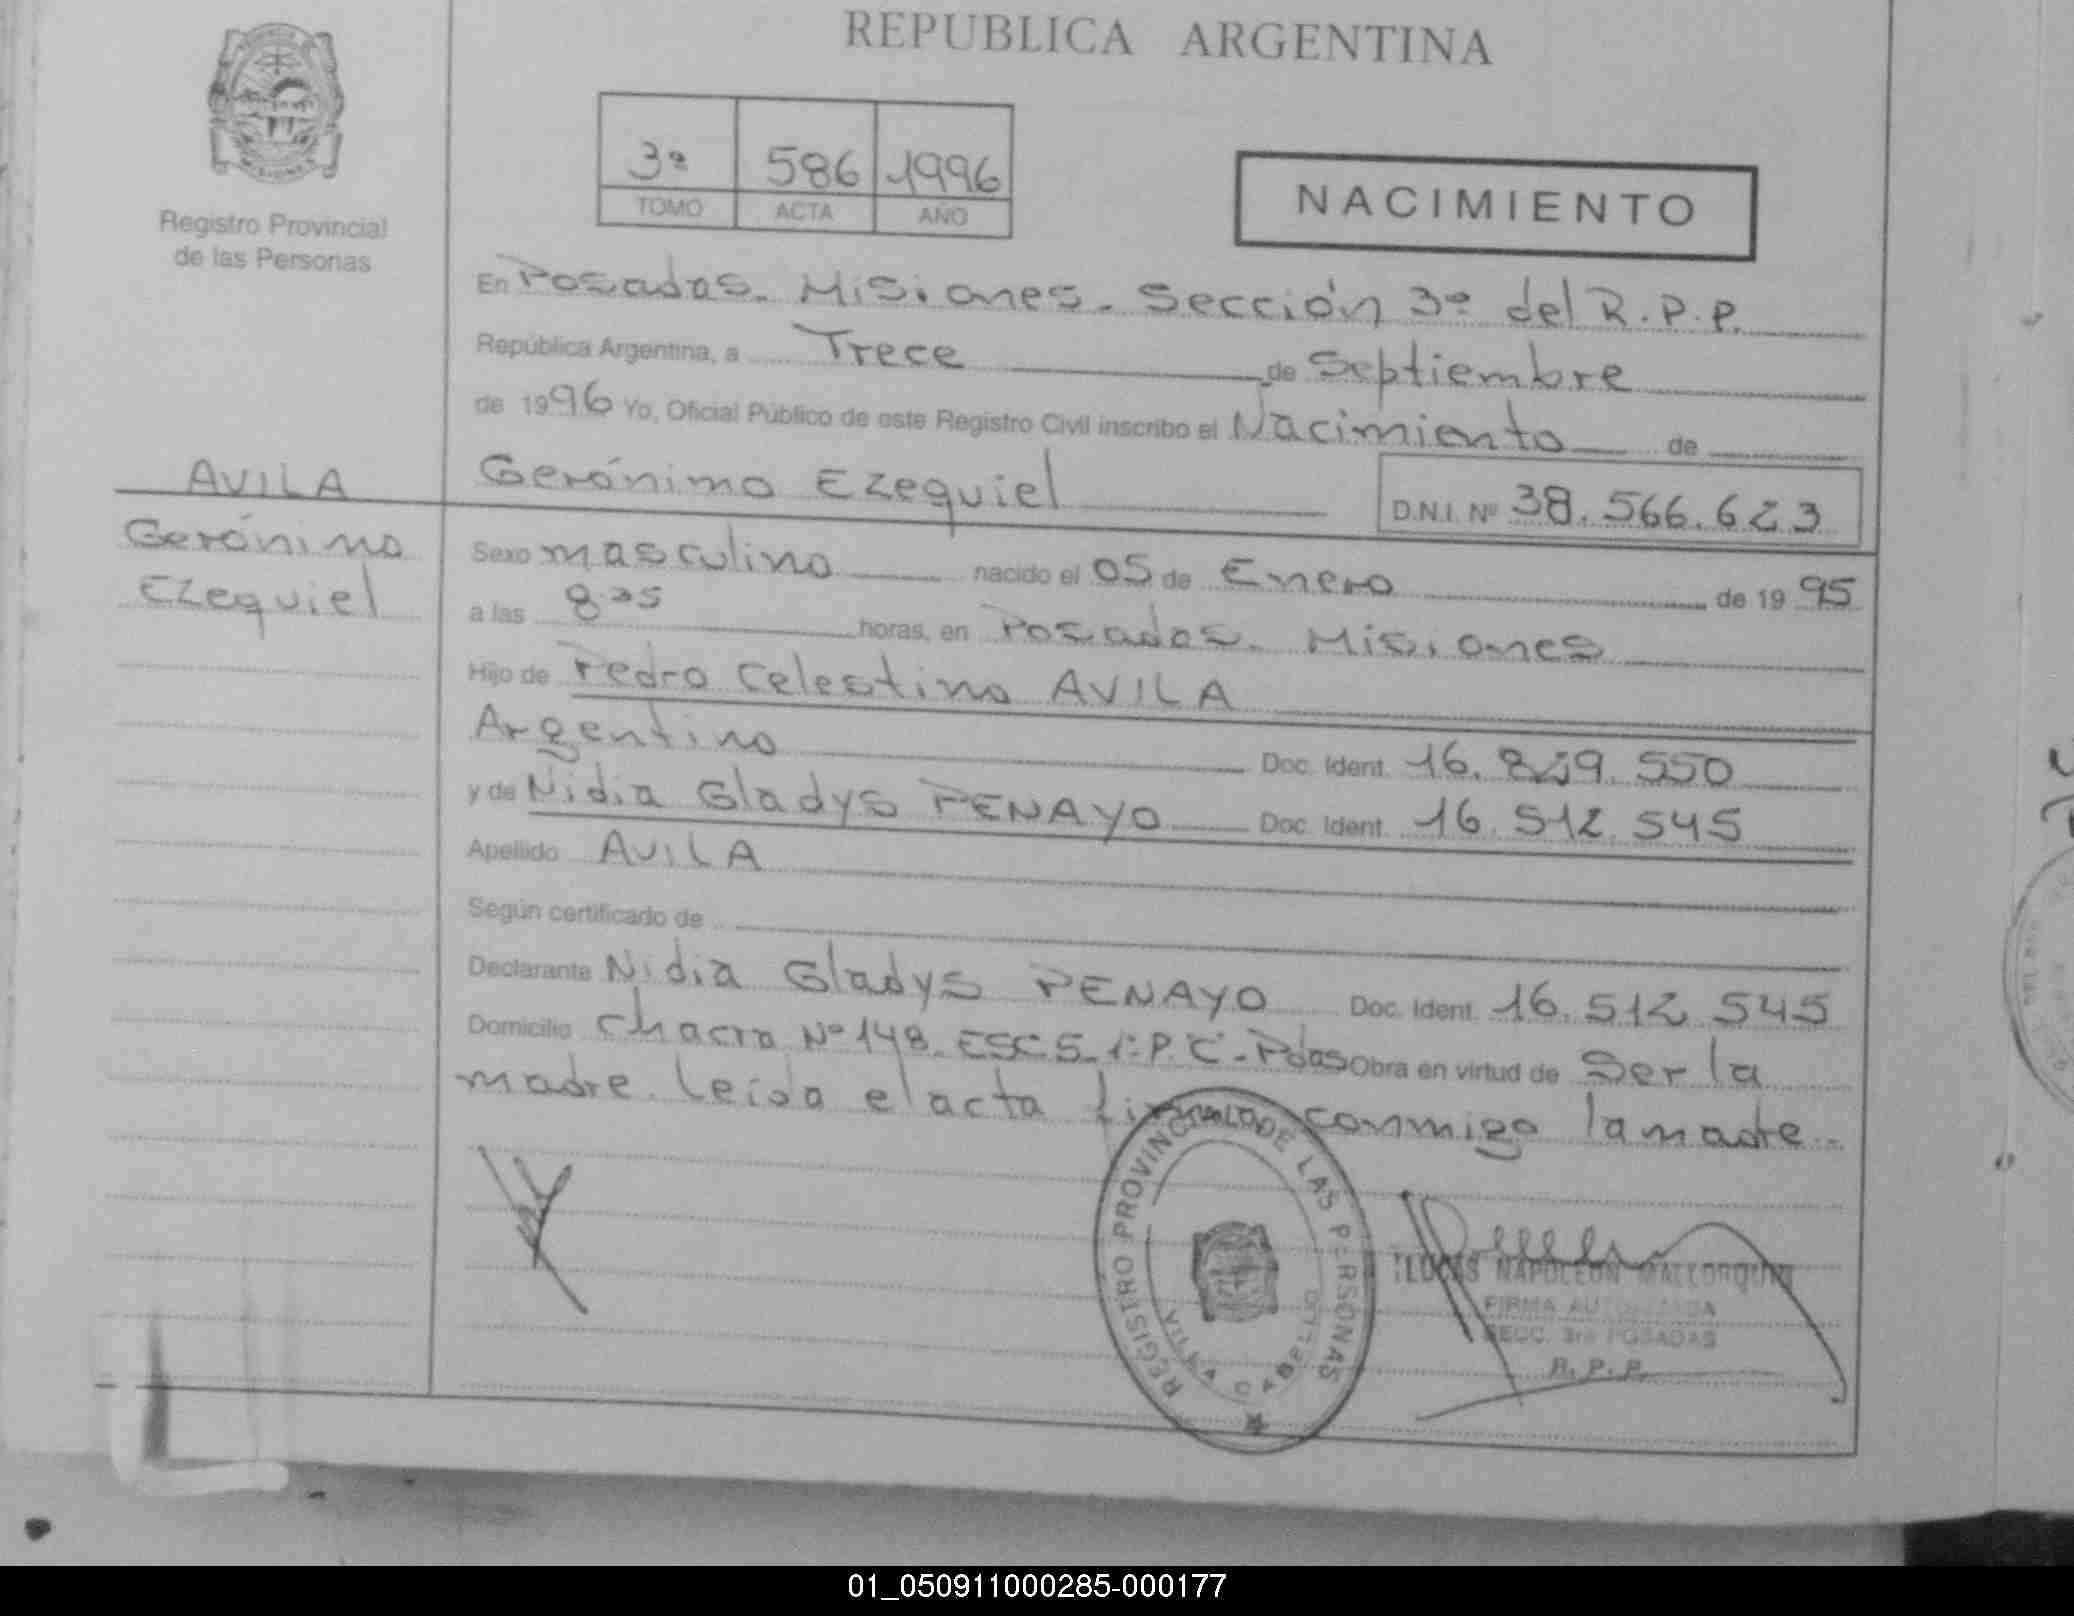 REPUBLICA ARGENTINA
3º 586 1996
TOMO ACTA AÑO
NACIMIENTO
Registro Provincial
de las Personas
En Posadas. Misiones. Sección 3º del R.P.P.
República Argentina, a Trece de Septiembre
de 1996 Yo, Oficial Público de este Registro Civil inscribo el Nacimiento de
AVILA
Gerónimo Ezequiel D.N.I. Nº 38.566.623
Gerónimo
Ezequiel
Sexo masculino nacido el 05 de Enero de 1995
a las horas, en Posadas. Misiones
Hijo de Pedro Celestino AVILA
Argentino Doc. Ident. 16. 550
y de Nidia Gladys PENAYO Doc. Ident. 16.512.545
Apellido AVILA
Según certificado de
Declarante Nidia Gladys PENAYO Doc. Ident. 16.512.545
Domicilio Chacra Nº 148. ESC 5. Pdas Obra en virtud de Ser la
madre. Leida el acta conmigo la madre.
REGISTRO PROVINCIAL DE LAS PERSONAS
VILLA CABELLO
NAPOLEON MALLORQUIN
FIRMA AUTORIZADA
SECC. 3ra POSADAS
R. P. P.
01_050911000285-000177